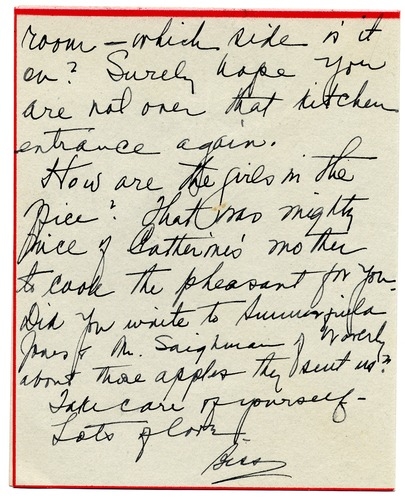 room – which side is it
on? Surely hope you
are not over that kitchen
entrance again.
How are the girls in the
office? That was mighty
nice of Catherine's mother
to cook the pheasant for you.
Did you write to
Jones & Mr. of Waverly
about those apples they sent us?
Take care of yourself –
Lots of love –